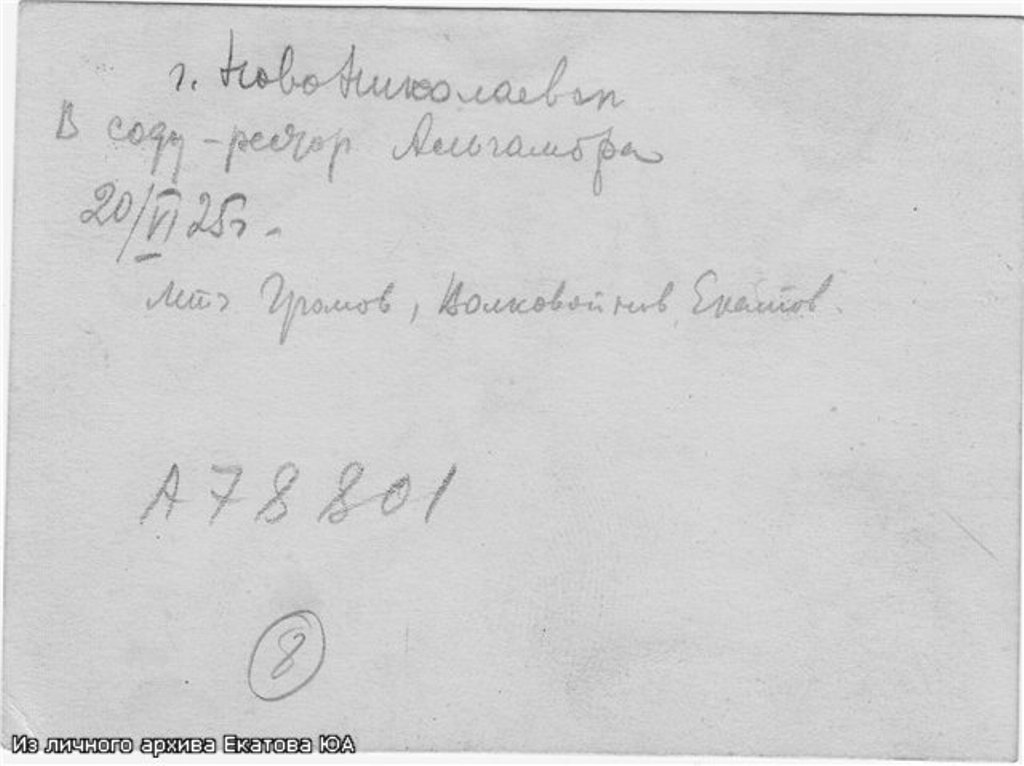 г. Ново Николаевск
В саду-ресчор Альгамбра
20/VI 25г.
Лётч Громов, Волковойнов, Екатов.
А 78 801
8
Из личного архива Екатова ЮА